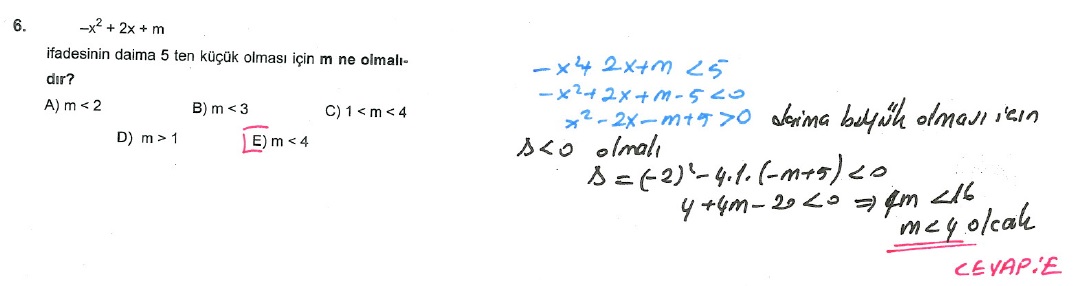 6. –x² + 2x + m
ifadesinin daima 5 ten küçük olması için m ne olmalı-
dır?
A) m < 2 B) m < 3 C) 1 < m < 4
D) m > 1 E) m < 4
-x²+ 2x+m < 5
-x²+2x+m-5 <0
x²-2x-m+5 >0 daima büyük olması için
Δ<0 olmalı
Δ = (-2)²-4.1.(-m+5) <0
4+4m-20 <0 ⇒ 4m <16
m<4 olcak
CEVAP:E